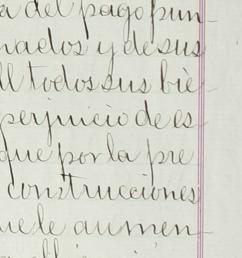 a del pago pun-
nados y de sus
ll todos sus bie-
perjuicio de es-
que por la pre
construcciones
uele aumen-